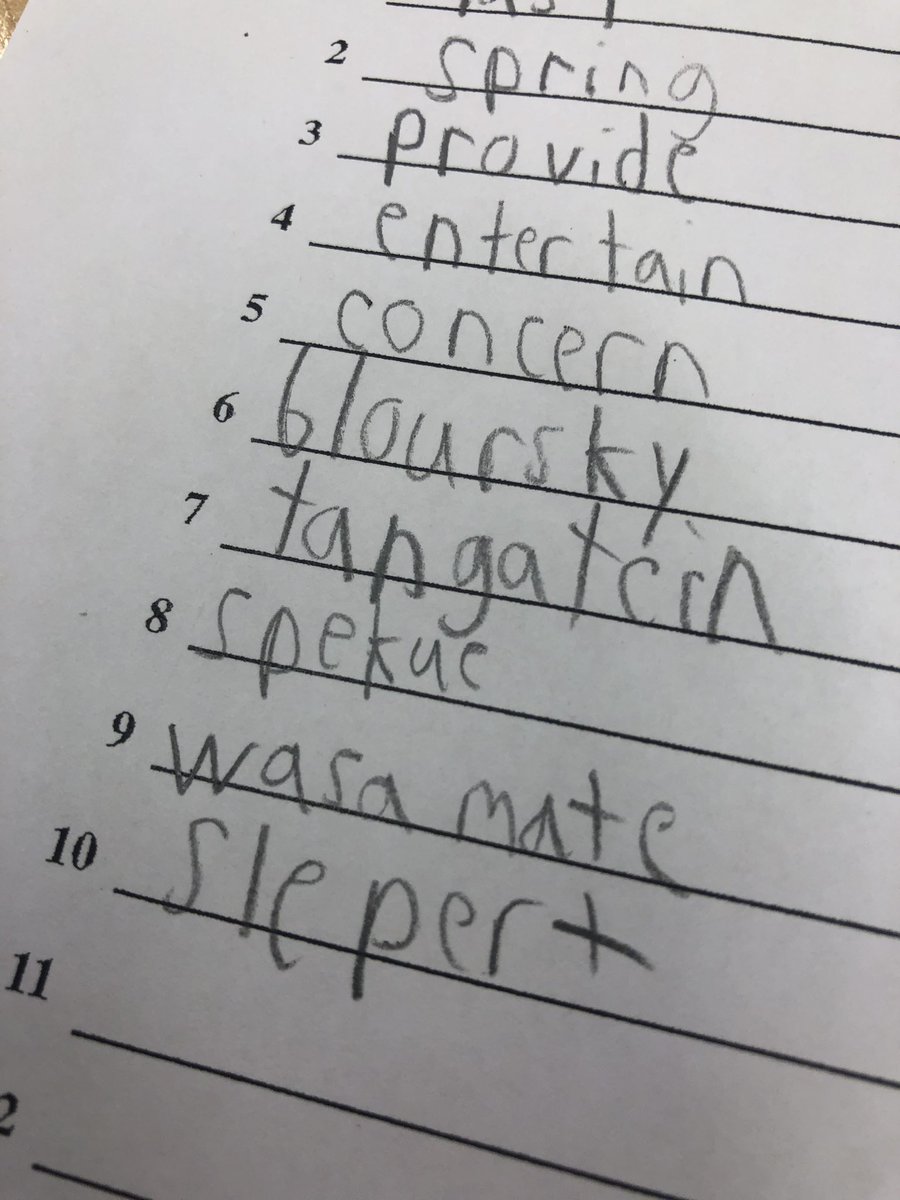 2 spring
3 provide
4 entertain
5 concern
6 bloursky
7 tangatein
8 spekue
9 wasamate
10 slepert
11